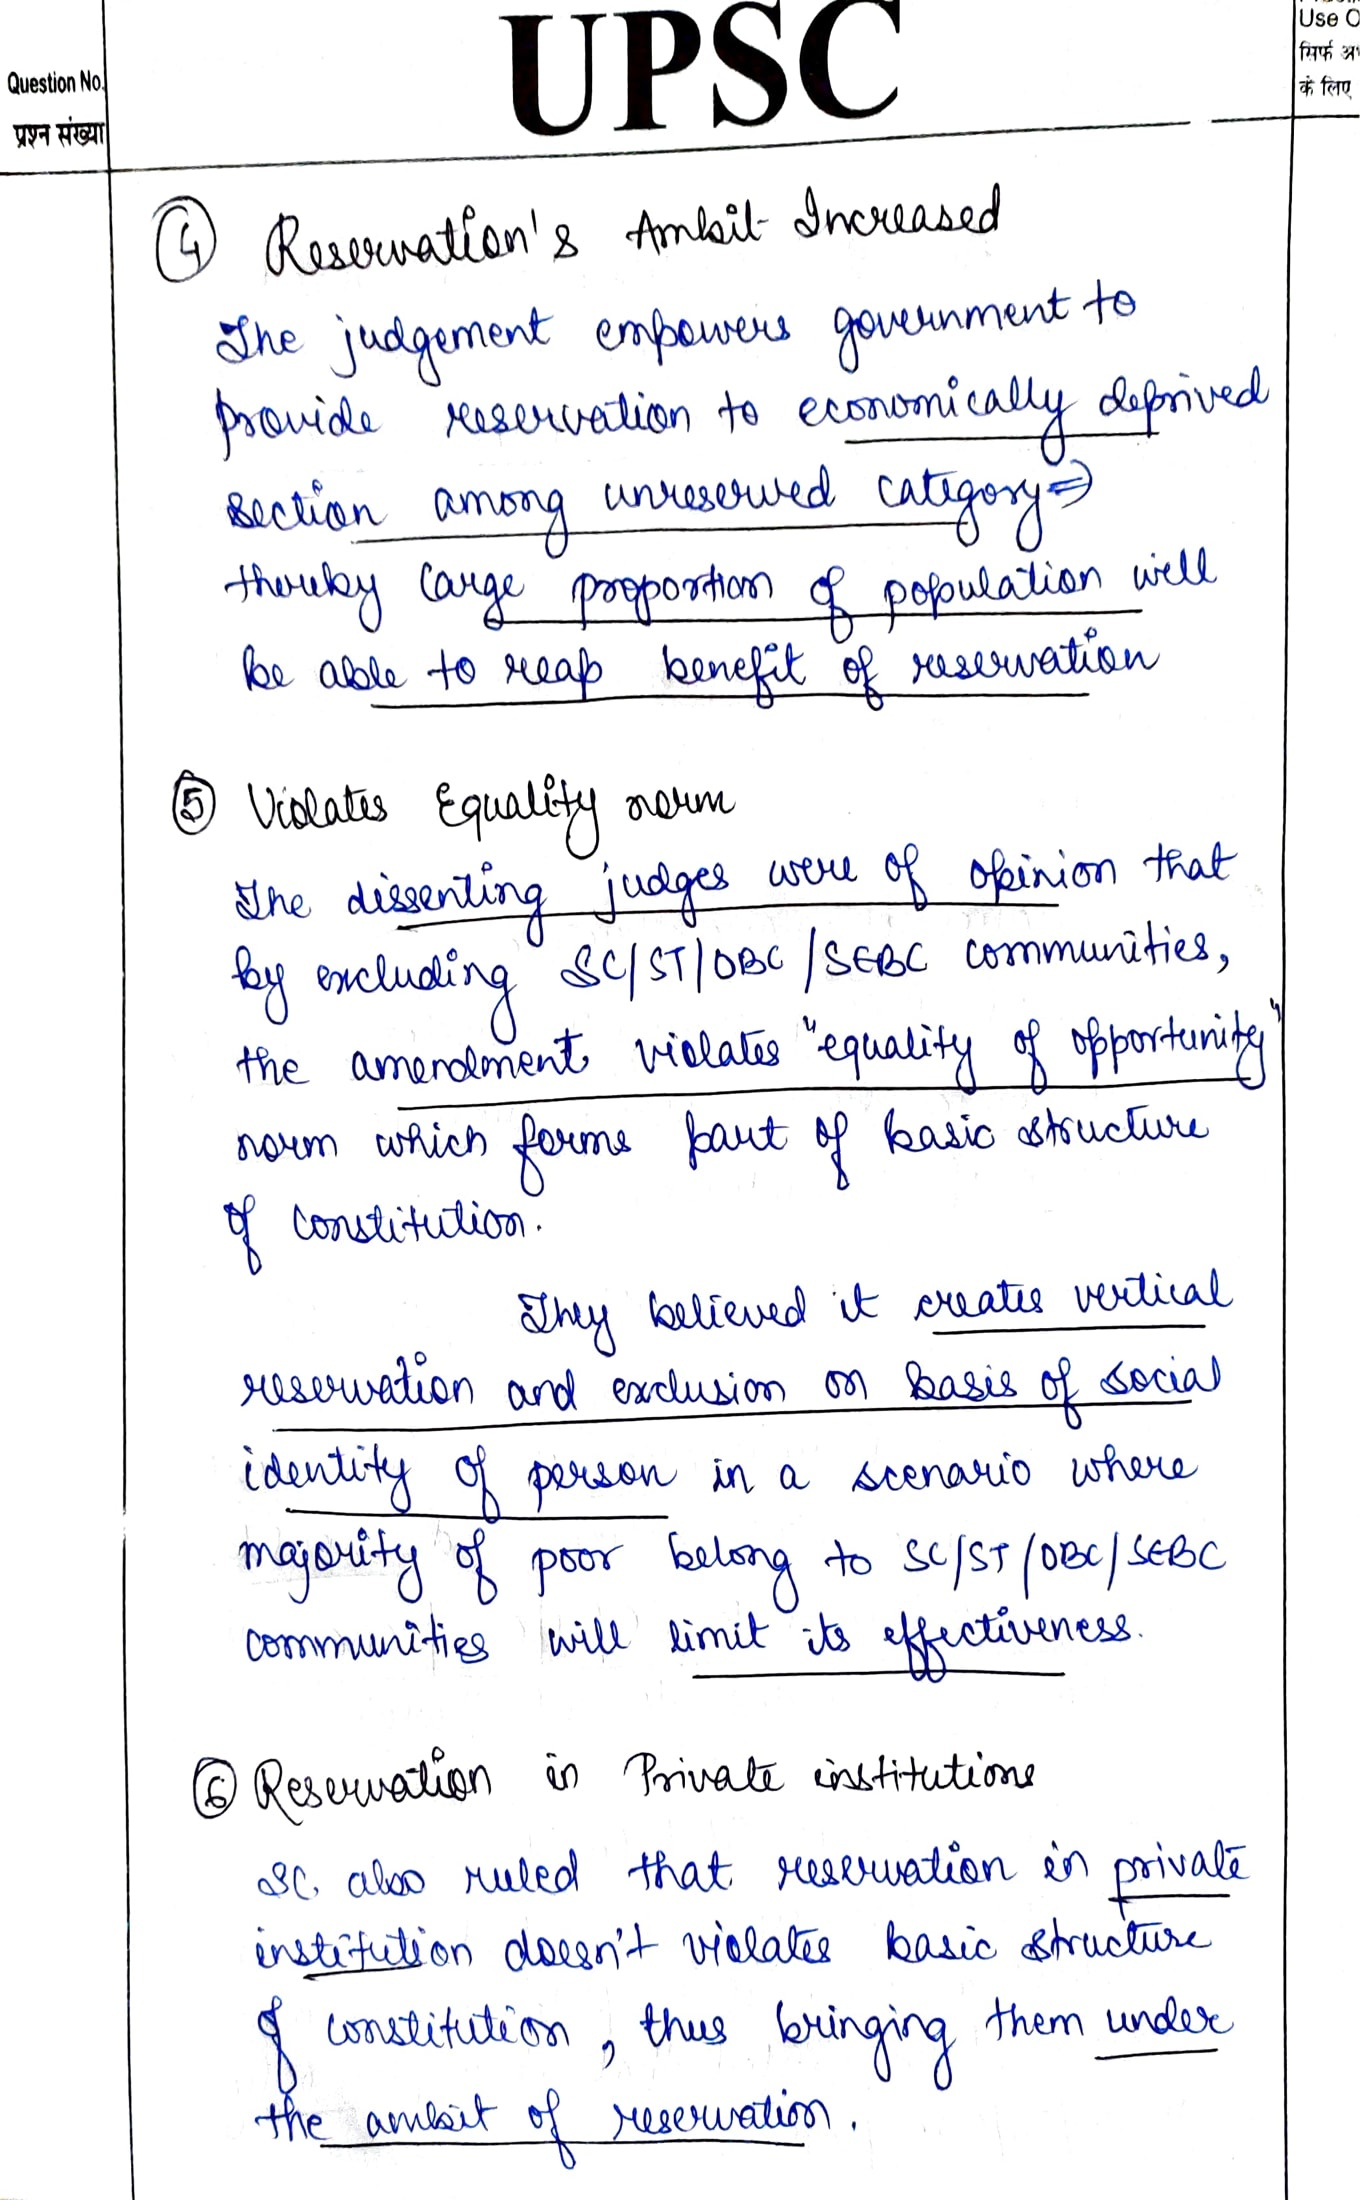 UPSC
Question No.
प्रश्न संख्या
Use O
सिर्फ अ
के लिए
4 Reservation's Ambit Increased
The judgement empowers government to
provide reservation to economically deprived
section among unreserved category ⇒
thereby large proportion of population will
be able to reap benefit of reservation
5 Violates Equality norm
The dissenting judges were of opinion that
by excluding SC/ST/OBC/SEBC communities,
the amendment violates "equality of opportunity"
norm which forms part of basic structure
of constitution.
They believed it creates vertical
reservation and exclusion on basis of social
identity of person in a scenario where
majority of poor belong to SC/ST/OBC/SEBC
communities will limit its effectiveness.
6 Reservation in Private institutions
SC also ruled that reservation in private
institution doesn't violates basic structure
of constitution, thus bringing them under
the ambit of reservation.